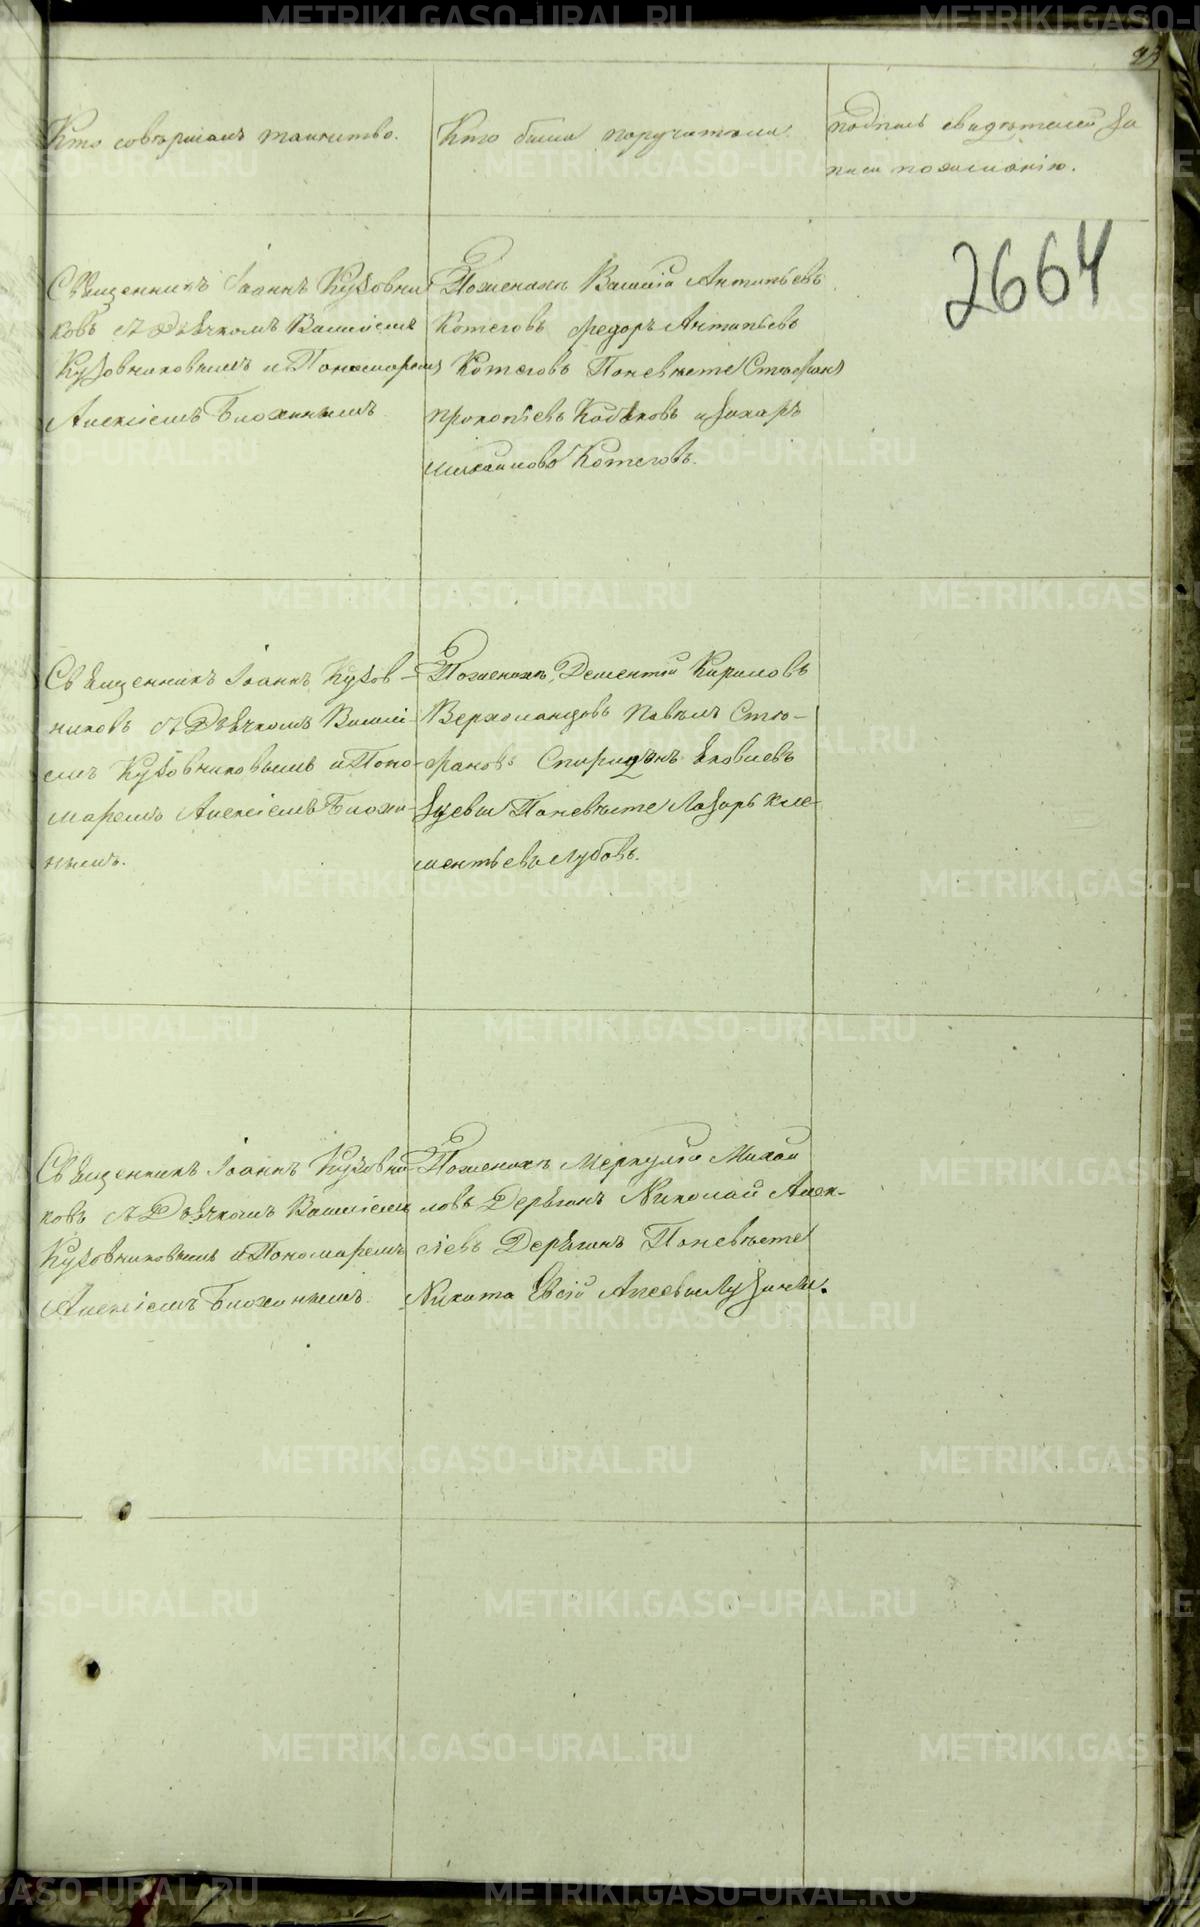 Кто совершалъ таинство.
Кто были поручители.
подпись свидетелей за
писи по желанію.
2664
Священникъ Іоаннъ Кузовни
ковъ с Дьячкомъ Василіемъ
Кузовниковымъ и Пономаремъ
Алексіемъ Блохинымъ
По женихѣ Василій Антипьевъ
Котеговъ Федоръ Антипьевъ
Котеговъ По невѣсте Стефанъ
Прокопьевъ и Захаръ
Михаиловъ Котеговъ.
Священникъ Іоаннъ Кузов-
никовъ с Дьячкомъ Василі-
емъ Кузовниковымъ и Поно-
маремъ Алексіемъ Блохи-
нымъ.
По женихѣ Дементій Кириловъ
Верхоланцовъ Павелъ Сте-
фановъ Спиридонъ Яковлевъ
По невѣсте Лазарь Кле-
ментьевъ Зубовъ.
Священникъ Іоаннъ Кузовни
ковъ с Дьячкомъ Василіемъ
Кузовниковымъ и Пономаремъ
Алексіемъ Блохинымъ.
По женихѣ Меркурій Михаи
ловъ Дерягинъ Николай Алек-
сіевъ Дерягинъ По невѣсте
Никита
METRIKI.GASO-URAL.RU